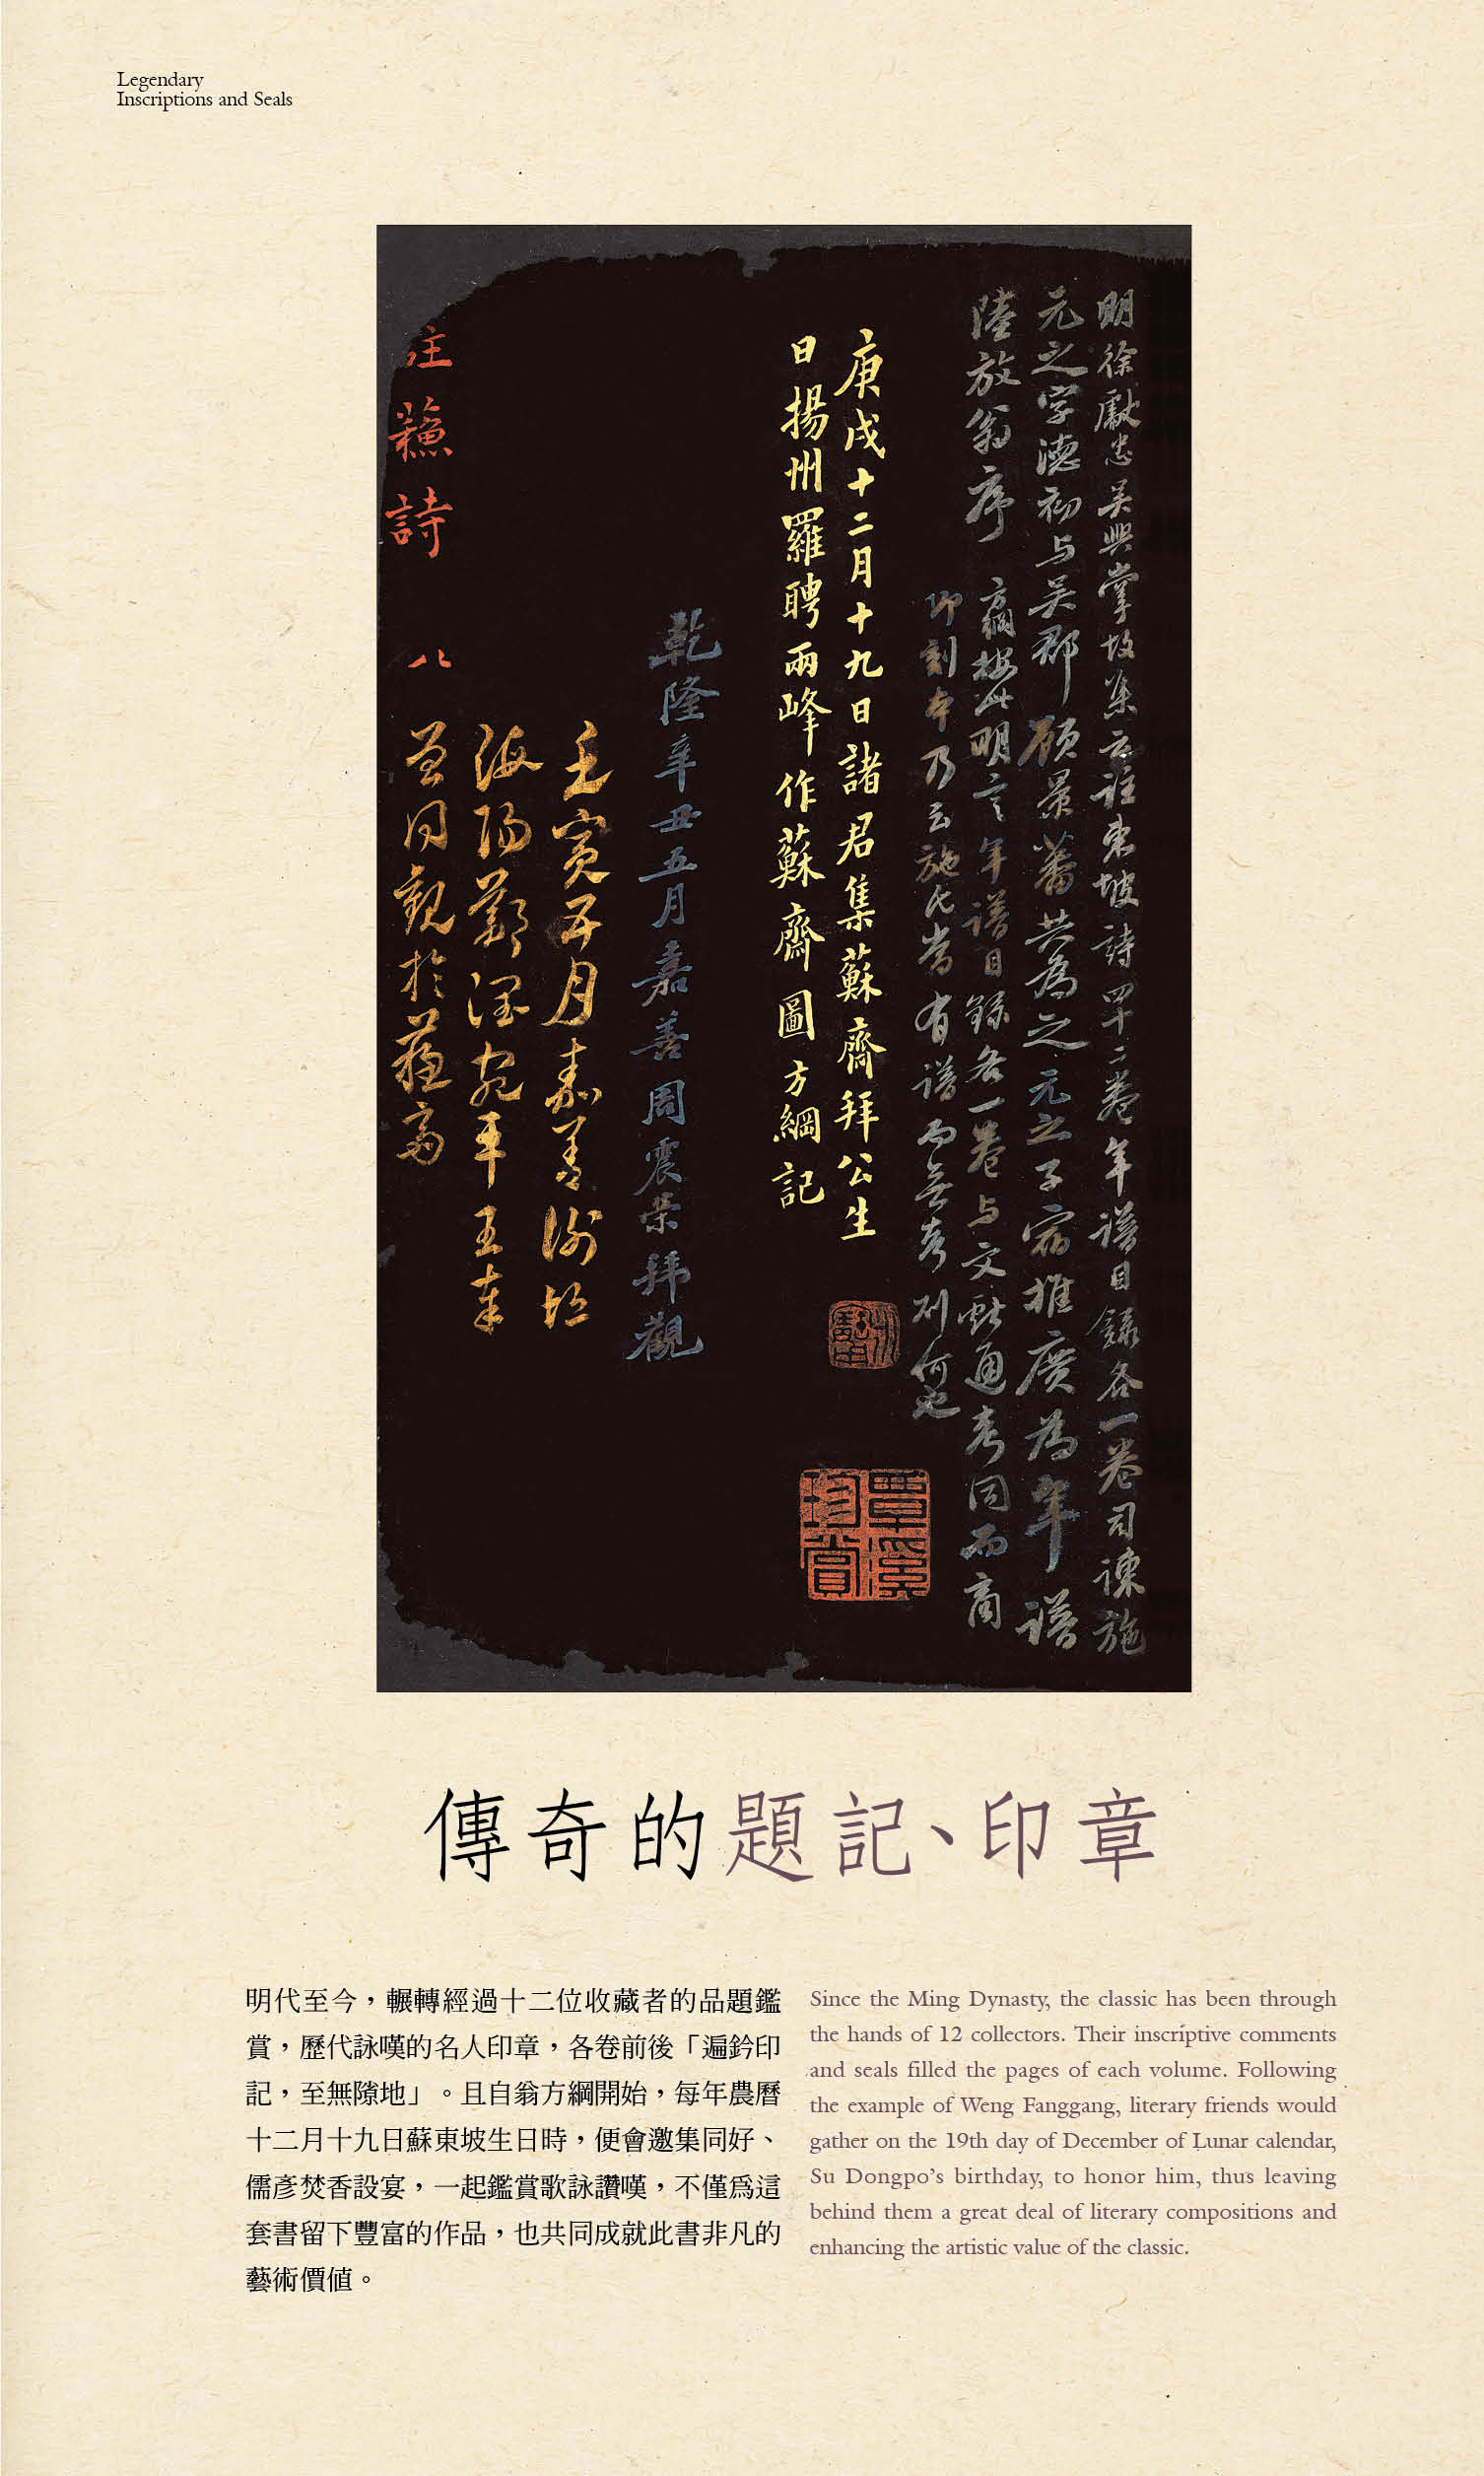 Legendary
Inscriptions and Seals
明徐獻忠吳興掌故集云註東坡詩四十二卷年譜目錄各一卷司諫施
元之字德初与吳郡顧景蕃共為之元之子宿推廣為年譜
陸放翁序 方綱按此明言年譜目錄各一卷与文獻通考同而商
邱刻本乃云施氏當有譜而無考列何也
庚戌十二月十九日諸君集蘇齋拜公生
日揚州羅聘兩峰作蘇齋圖方綱記
乾隆辛丑五月嘉善周震榮拜觀
壬寅五月嘉善謝垣
海陽鄭澐宛平王奉
曾同觀於蘇齋
註蘓詩 八
覃溪
珍賞
傳奇的題記、印章
明代至今，輾轉經過十二位收藏者的品題鑑
賞，歷代詠嘆的名人印章，各卷前後「遍鈐印
記，至無隙地」。且自翁方綱開始，每年農曆
十二月十九日蘇東坡生日時，便會邀集同好、
儒彥焚香設宴，一起鑑賞歌詠讚嘆，不僅為這
套書留下豐富的作品，也共同成就此書非凡的
藝術價值。
Since the Ming Dynasty, the classic has been through
the hands of 12 collectors. Their inscriptive comments
and seals filled the pages of each volume. Following
the example of Weng Fanggang, literary friends would
gather on the 19th day of December of Lunar calendar,
Su Dongpo's birthday, to honor him, thus leaving
behind them a great deal of literary compositions and
enhancing the artistic value of the classic.